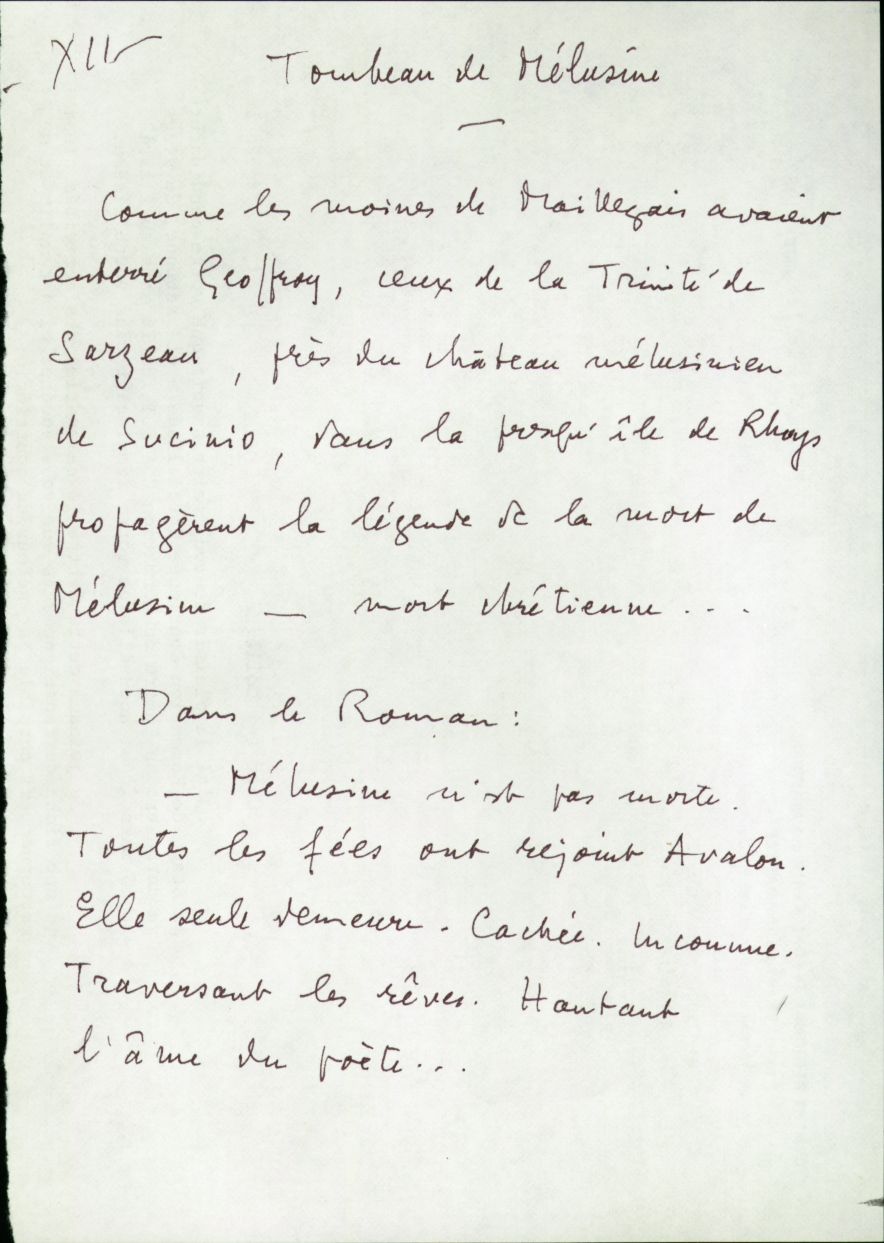 XII
Tombeau de Mélusine
—
Comme les moines de Maillezais avaient
enterré Geoffroy, ceux de la Trinité de
Sarzeau, près du château mélusinien
de Sucinio, dans la presqu'île de Rhuys
propagèrent la légende de la mort de
Mélusine — mort chrétienne...
Dans le Roman :
— Mélusine n'est pas morte.
Toutes les fées ont rejoint Avalon.
Elle seule demeure. Cachée. Inconnue.
Traversant les rêves. Hantant
l'âme du poète...